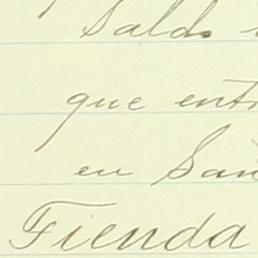 Saldo
que entr
en San
Tienda